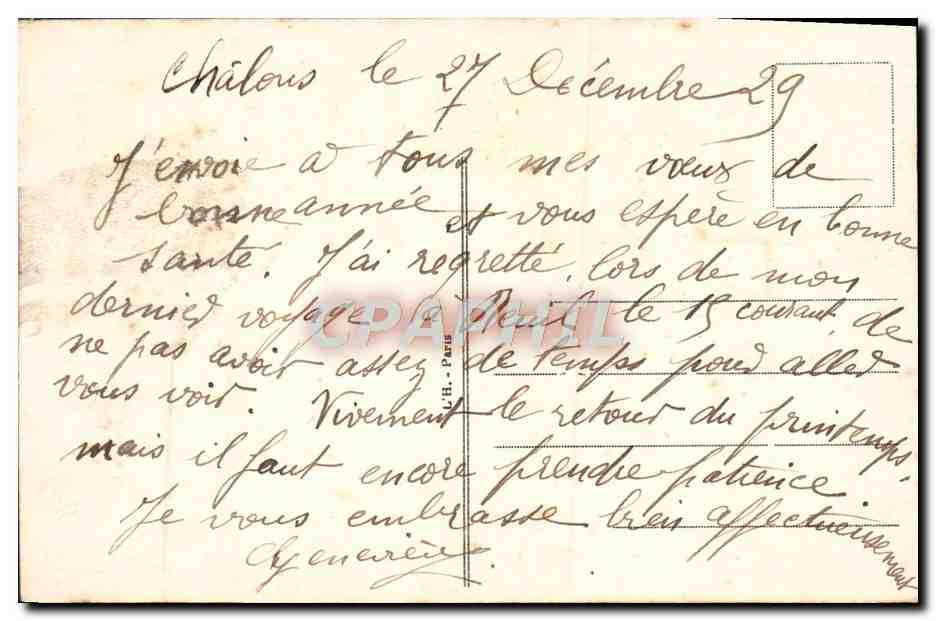 Châlons le 27 Décembre 29
J'envoie à tous mes vœux de
bonne année et vous espère en bonne
santé. J'ai regretté, lors de mon
dernier voyage à le 15 courant, de
ne pas avoir assez de temps pour aller
vous voir. Vivement le retour du printemps,
mais il faut encore prendre patience.
Je vous embrasse bien affectueusement
Geneviève.
L'H. - Paris
CPAPHIL